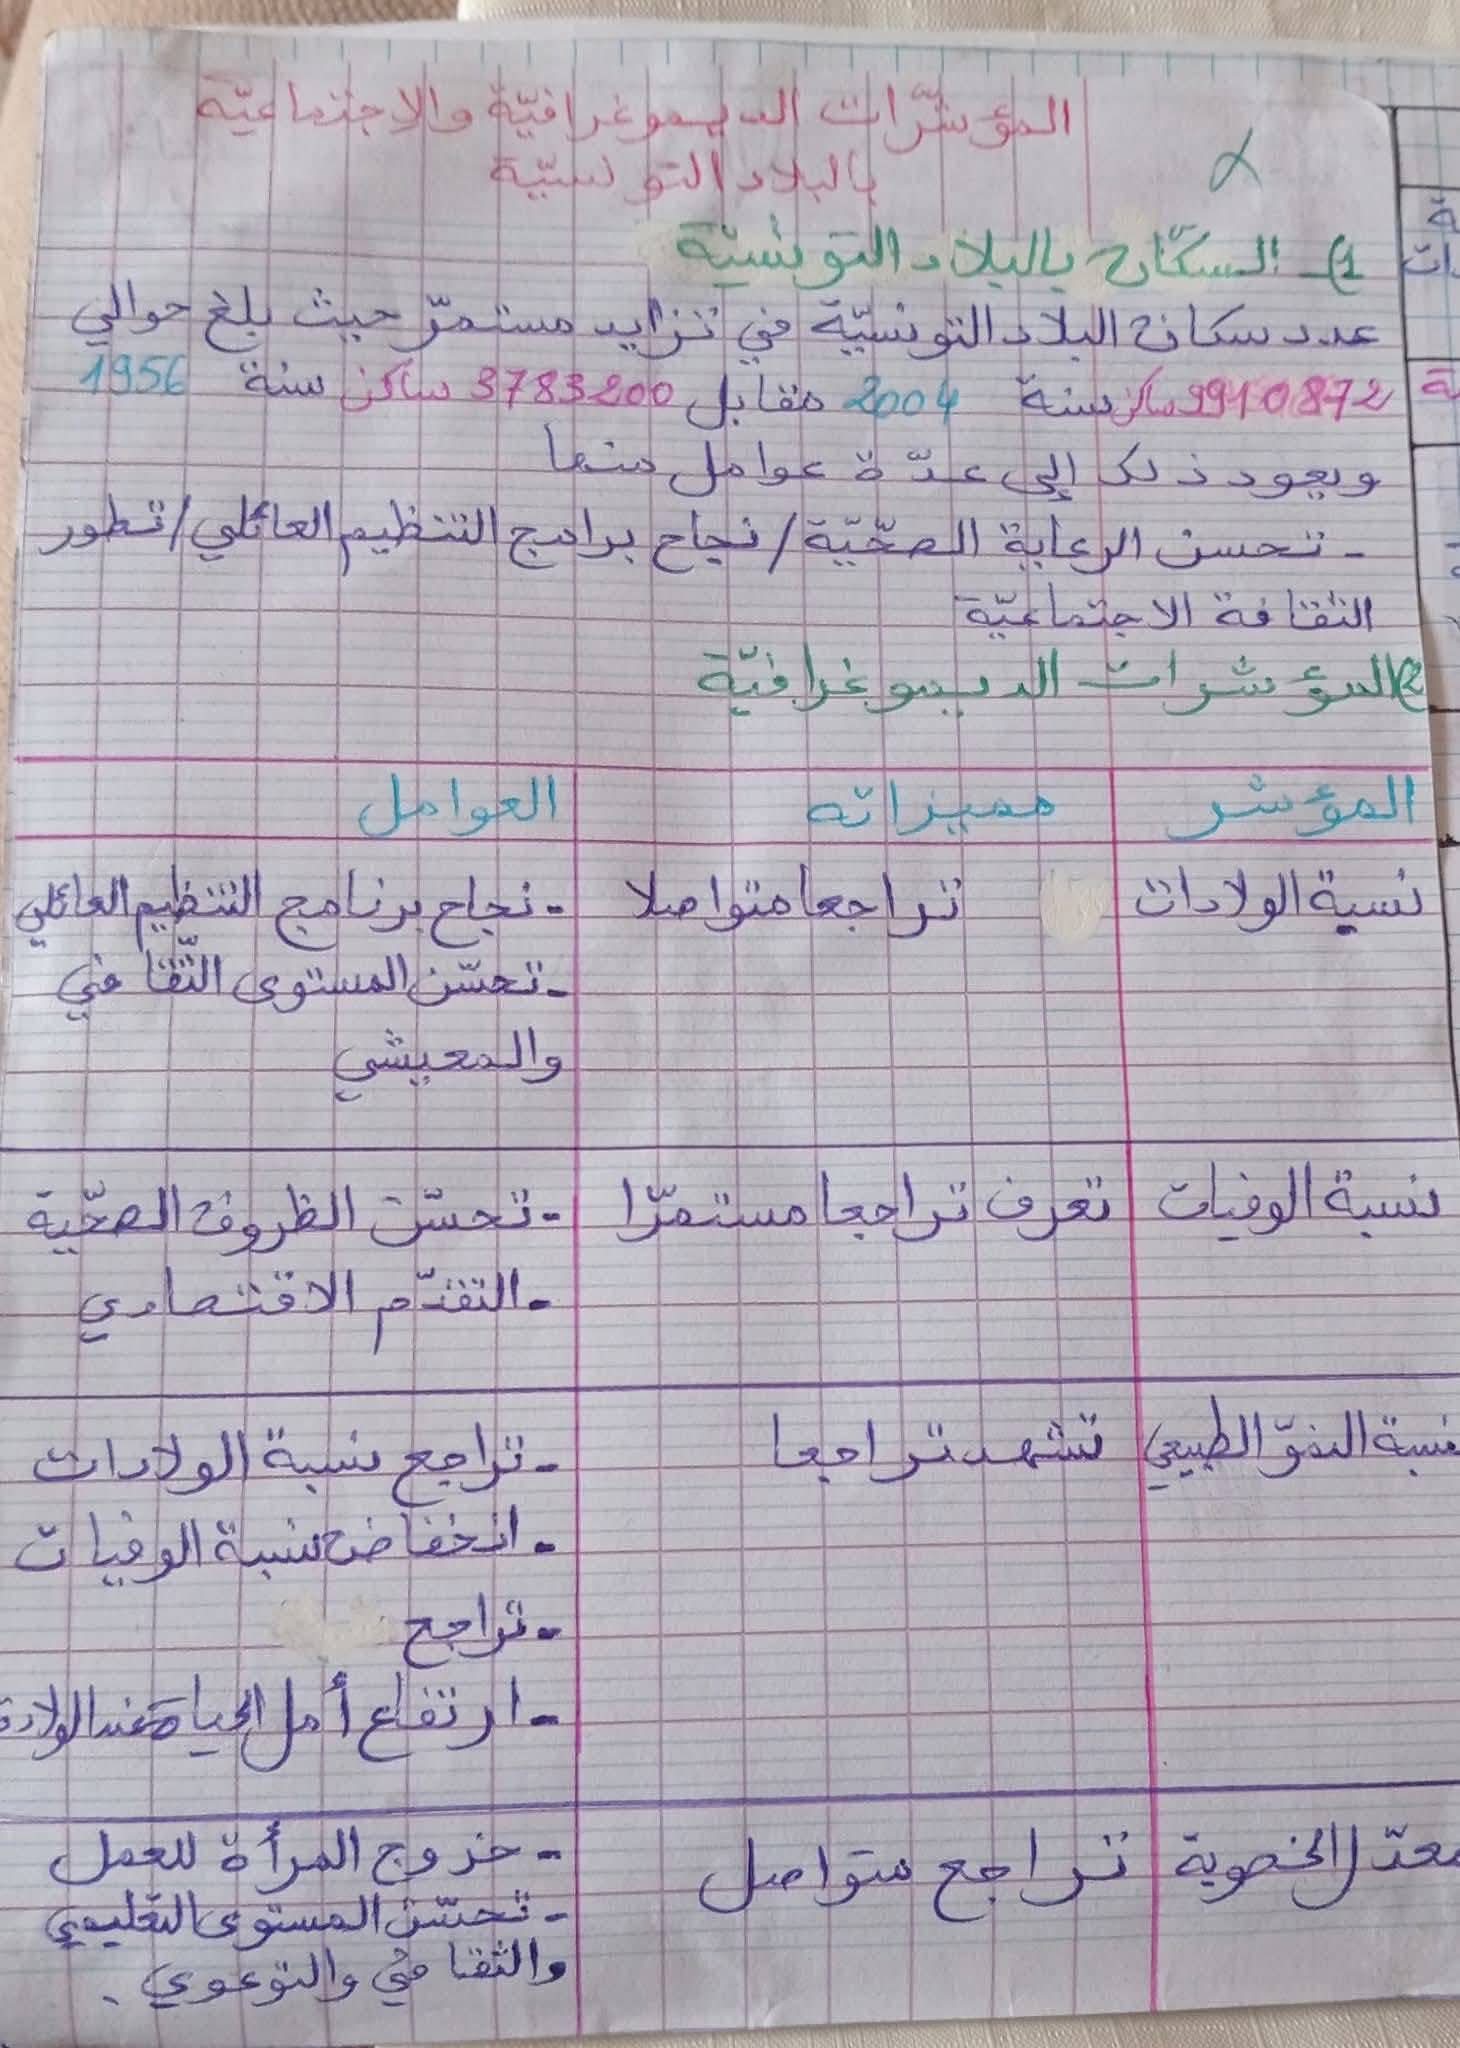 المؤشّرات الديموغرافيّة والاجتماعيّة
بالبلاد التونسيّة
1)- السكّان بالبلاد التونسيّة
عدد سكان البلاد التونسيّة في تزايد مستمرّ حيث بلغ حوالي
9910872 ساكن سنة 2004 مقابل 3783200 ساكن سنة 1956
ويعود ذلك إلى عدّة عوامل منها
- تحسن الرعاية الصحّيّة / نجاح برامج التنظيم العائلي / تطور
الثقافة الاجتماعيّة
2) المؤشرات الديموغرافيّة
المؤشر مميزاته العوامل
نسبة الولادات تراجعا متواصلا - نجاح برنامج التنظيم العائلي
- تحسّن المستوى الثّقافي
والمعيشي
نسبة الوفيات تعرف تراجعا مستمرّا - تحسّن الظروف الصحّية
- التقدّم الاقتصادي
نسبة النموّ الطبيعي تشهد تراجعا - تراجع نسبة الولادات
- انخفاض نسبة الوفيات
- تراجع
- ارتفاع أمل الحياة عند الولادة
معدّل الخصوبة تراجع متواصل - خروج المرأة للعمل
- تحسّن المستوى التعليمي
والثقافي والتوعوي.